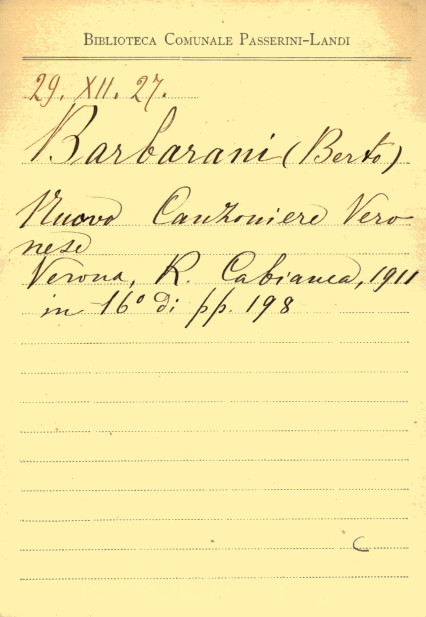 BIBLIOTECA COMUNALE PASSERINI-LANDI
29. XII. 27.
Barbarani (Berto)
Nuovo Canzoniere Vero
nese
Verona, R. Cabianca, 1911
in 16° di pp. 198
C